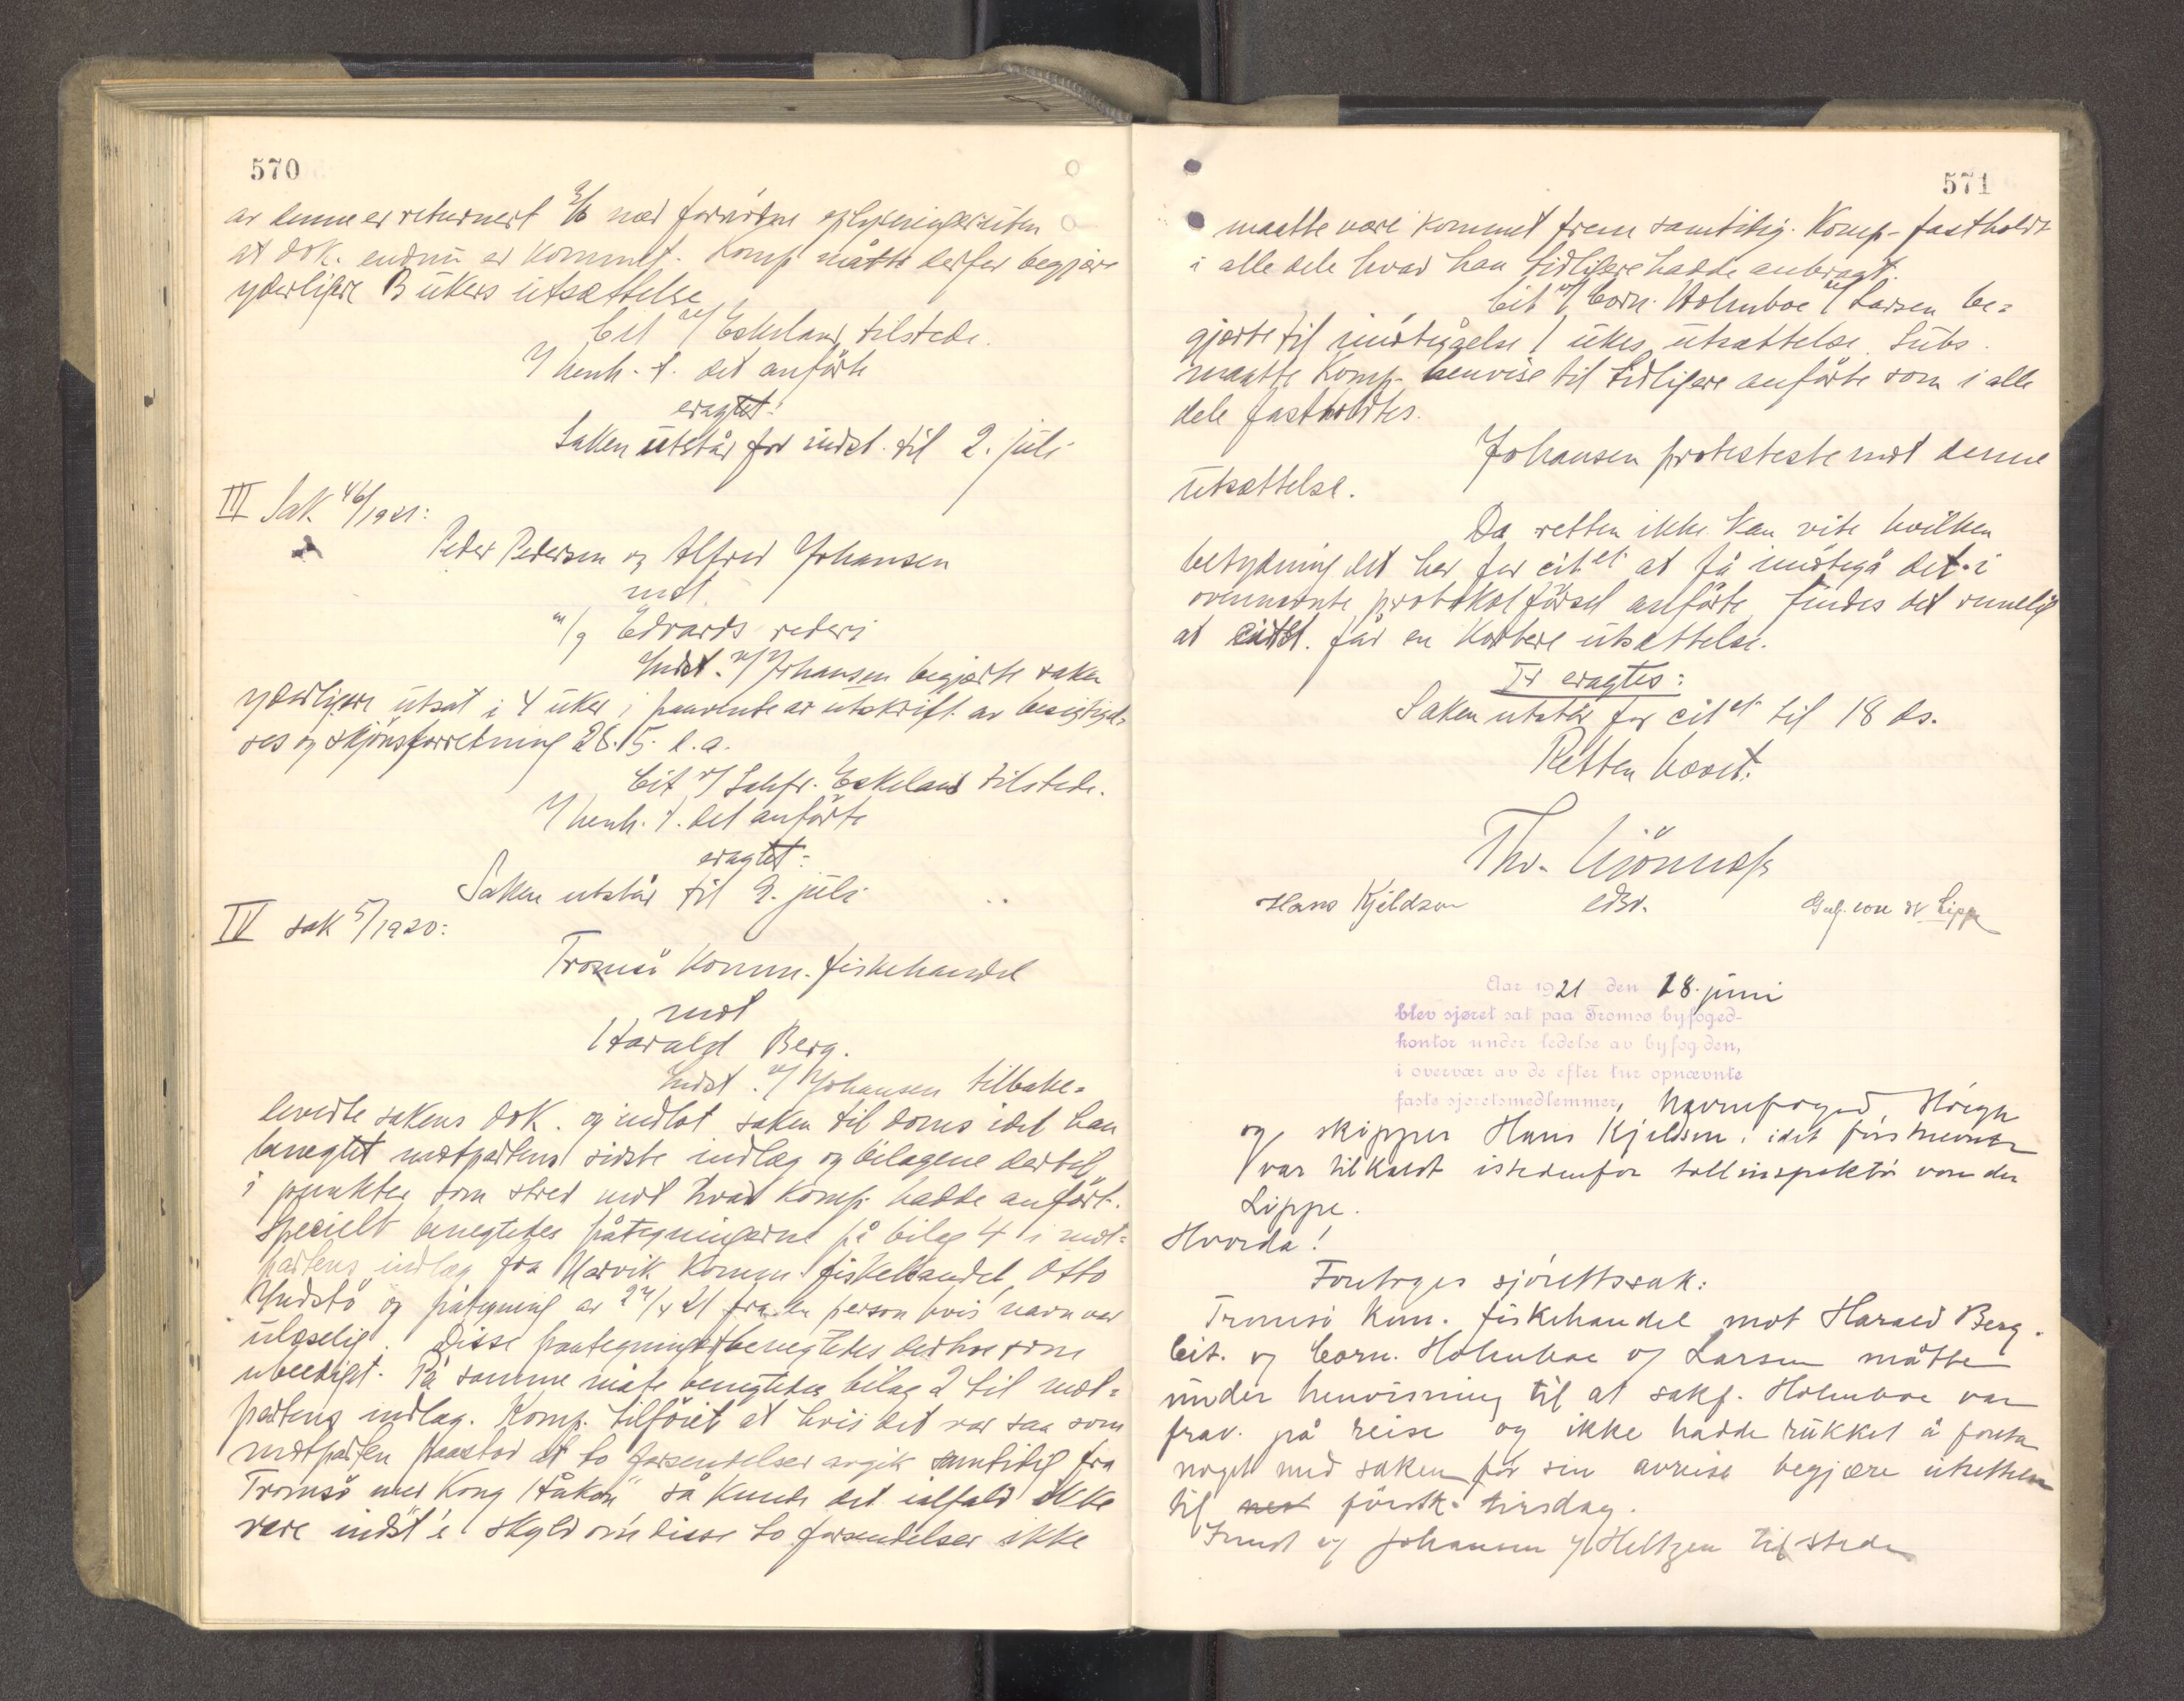 570
av denne er returnert 3/6 med fornødne oplysninger uten
at dok. endnu er kommet. Komp måtte derfor begjære
yderligere 3 ukers utsættelse
Cit v/ Eskeland tilstede.
I henh. t. det anførte
eragtet:
Saken utstår for indst. til 2. juli
III Sak 46/1921:
Peder Pedersen og Alfred Johansen
mot
m/g Edvards rederi
Indst. v/ Johansen begjærte saken
yderligere utsat i 4 uker i paavente av utskrift av besigtigel-
ses og skjønsforretning 26.5. d.a.
Cit v/ Sakfr. Eskeland tilstede.
I henh. t. det anførte
eragtet:
Saken utstår til 9. juli
IV sak 5/1920:
Tromsø komm. fiskehandel
mot
Harald Berg.
Indst. v/ Johansen tilbake-
leverte sakens dok. og indlot saken til doms idet han
benegtet motpartens sidste indlæg og bilagene dertil
i punkter som stred mot hvad Komp. hadde anført.
Specielt benegtedes påtegningerne på bilag 4 i mot-
partens indlæg fra Narvik Komm. fiskehandel, Otto
Indstö og påtegning av 27/4 21 fra en person hvis navn var
ulæselig. Disse paategninger benegtedes derhos som
ubeediget. På samme måte benegtedes bilag 2 til mot-
partens indlæg. Komp. tilføiet at hvis det var saa som
motparten paastod at to forsendelser avgik samtidig fra
Tromsø med "Kong Håkon" så kunde det ialfald ikke
være indst's skyld om disse to forsendelser ikke
571
maatte være kommet frem samtidig. Komp. fastholdt
i alle dele hvad han tidligere hadde anbragt.
Cit v/ Corn. Holmboe v/ Larsen be-
gjærte til imøtegåelse 1 ukes utsættelse. Subs.
maatte Komp. henvise til tidligere anførte som i alle
dele fastholdtes.
Johansen protesterte mot denne
utsættelse.
Da retten ikke kan vite hvilken
betydning det har for citet. at få imøtegå det i
ovennævnte protokolførsel anførte findes det rimelig
at citet. får en kortere utsættelse.
Ti eragtes:
Saken utstår for citet. til 18 ds.
Retten hævet.
Thv. Grönnæss
Hans Kjeldsen
edsv.
von der Lippe
Aar 1921 den 18. juni
blev sjøret sat paa Tromsø byfoged-
kontor under ledelse av byfogden,
i overvær av de efter tur opnævnte
faste sjøretsmedlemmer, havnefoged Høegh
og skipper Hans Kjeldsen: idet førstnevnte
var tilkaldt istedenfor tollinspektør von der
Lippe.
Hvorda!
Foretoges sjørettssak:
Tromsø kom. fiskehandel mot Harald Berg.
Cit. v/ Corn. Holmboe v/ Larsen måtte
under henvisning til at sakf. Holmboe var
frav. på reise og ikke hadde rukket å foreta
noget med saken før sin avreise begjære utsettelse
til nest førstk. tirsdag.
Indst v/ Johansen v/ Heltzen tilstede